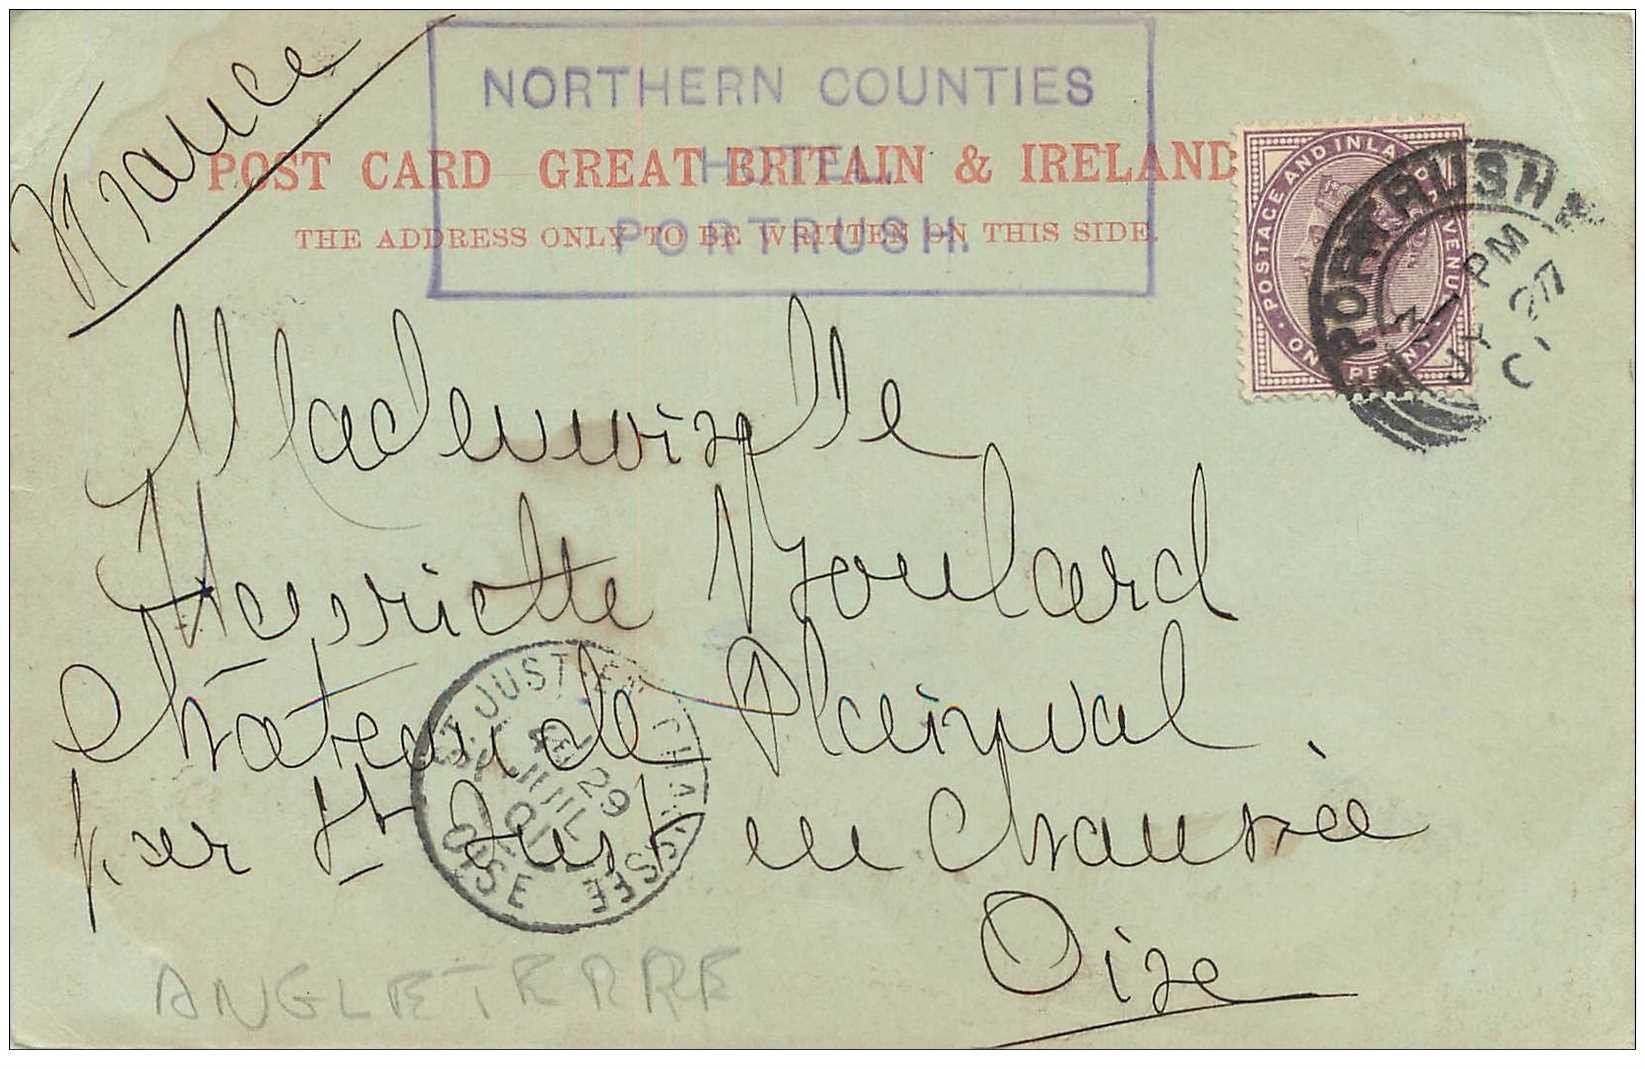 France
NORTHERN COUNTIES
HOTEL,
PORTRUSH.
POST CARD GREAT BRITAIN & IRELAND
THE ADDRESS ONLY TO BE WRITTEN ON THIS SIDE.
POSTAGE AND INLAND REVENUE
ONE PENNY
PORTRUSH
PM
JY 27
01
Mademoiselle
Henriette Moulard
Château de Plainval
par St Just en Chaussée
Oise
ST. JUST-EN-CHAUSSÉE
29
JUIL
01
OISE
ANGLETERRE